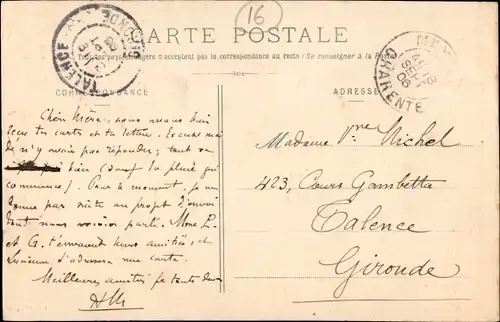 16
CARTE POSTALE
Tous les pays étrangers n'acceptent pas la correspondance au recto (Se renseigner à la Poste)
CORRESPONDANCE
ADRESSE
TALENCE GIRONDE
CHARENTE
SEPT
06
Chère Mère, nous avons bien
tes cartes et ta lettre. Excuse moi
de n'y avoir pas répondu; tout va
bien (sauf la pluie qui
commence). Pour le moment, je ne
donne pas suite au projet d'envoi
dont nous avions parlé. Mme P.
et G. t'envoient leurs amitiés, et
Lucienne t'adressera une carte.
Meilleures amitiés
Madame Vve Michel
423, Cours Gambetta
Talence
Gironde